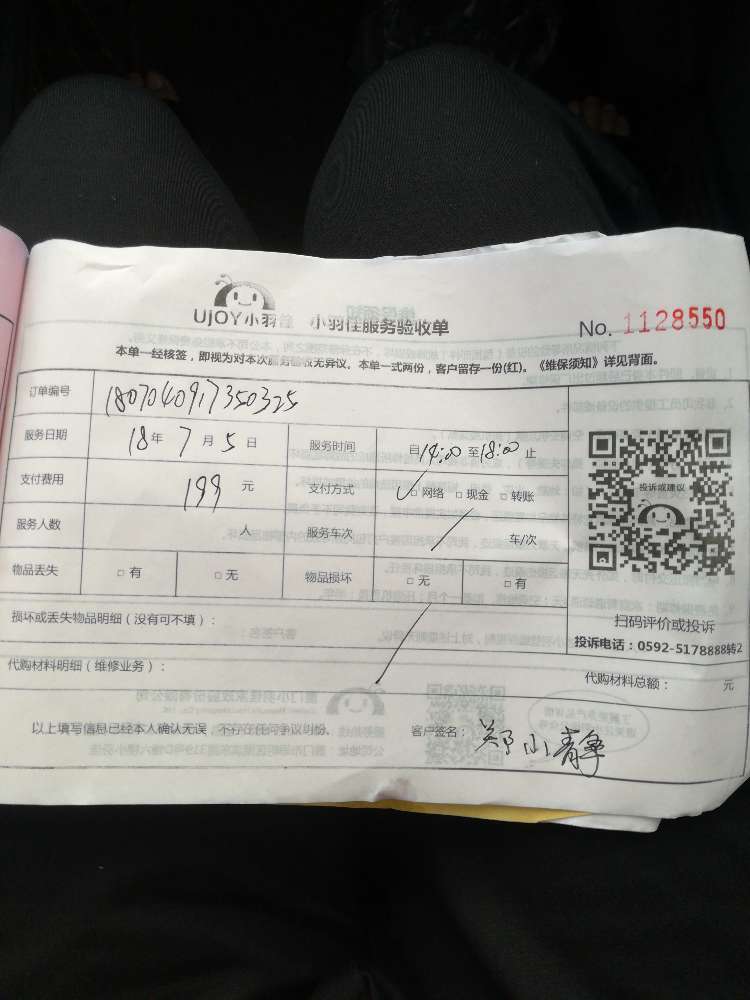 UJOY小羽佳 小羽佳服务验收单
No. 1128550
本单一经核签，即视为对本次服务验收无异议。本单一式两份，客户留存一份(红)。《维保须知》详见背面。
订单编号 1807040917350325
服务日期 18年7月5日 服务时间 自14:00至18:00止
支付费用 199元 支付方式 ☑网络 □现金 □转账
服务人数 人 服务车次 车/次
物品丢失 □有 □无 物品损坏 □无 □有
投诉或建议
扫码评价或投诉
投诉电话：0592-5178888转2
损坏或丢失物品明细（没有可不填）：
代购材料明细（维修业务）： 代购材料总额： 元
以上填写信息已经本人确认无误，不存在任何争议纠纷。 客户签名：郑小静